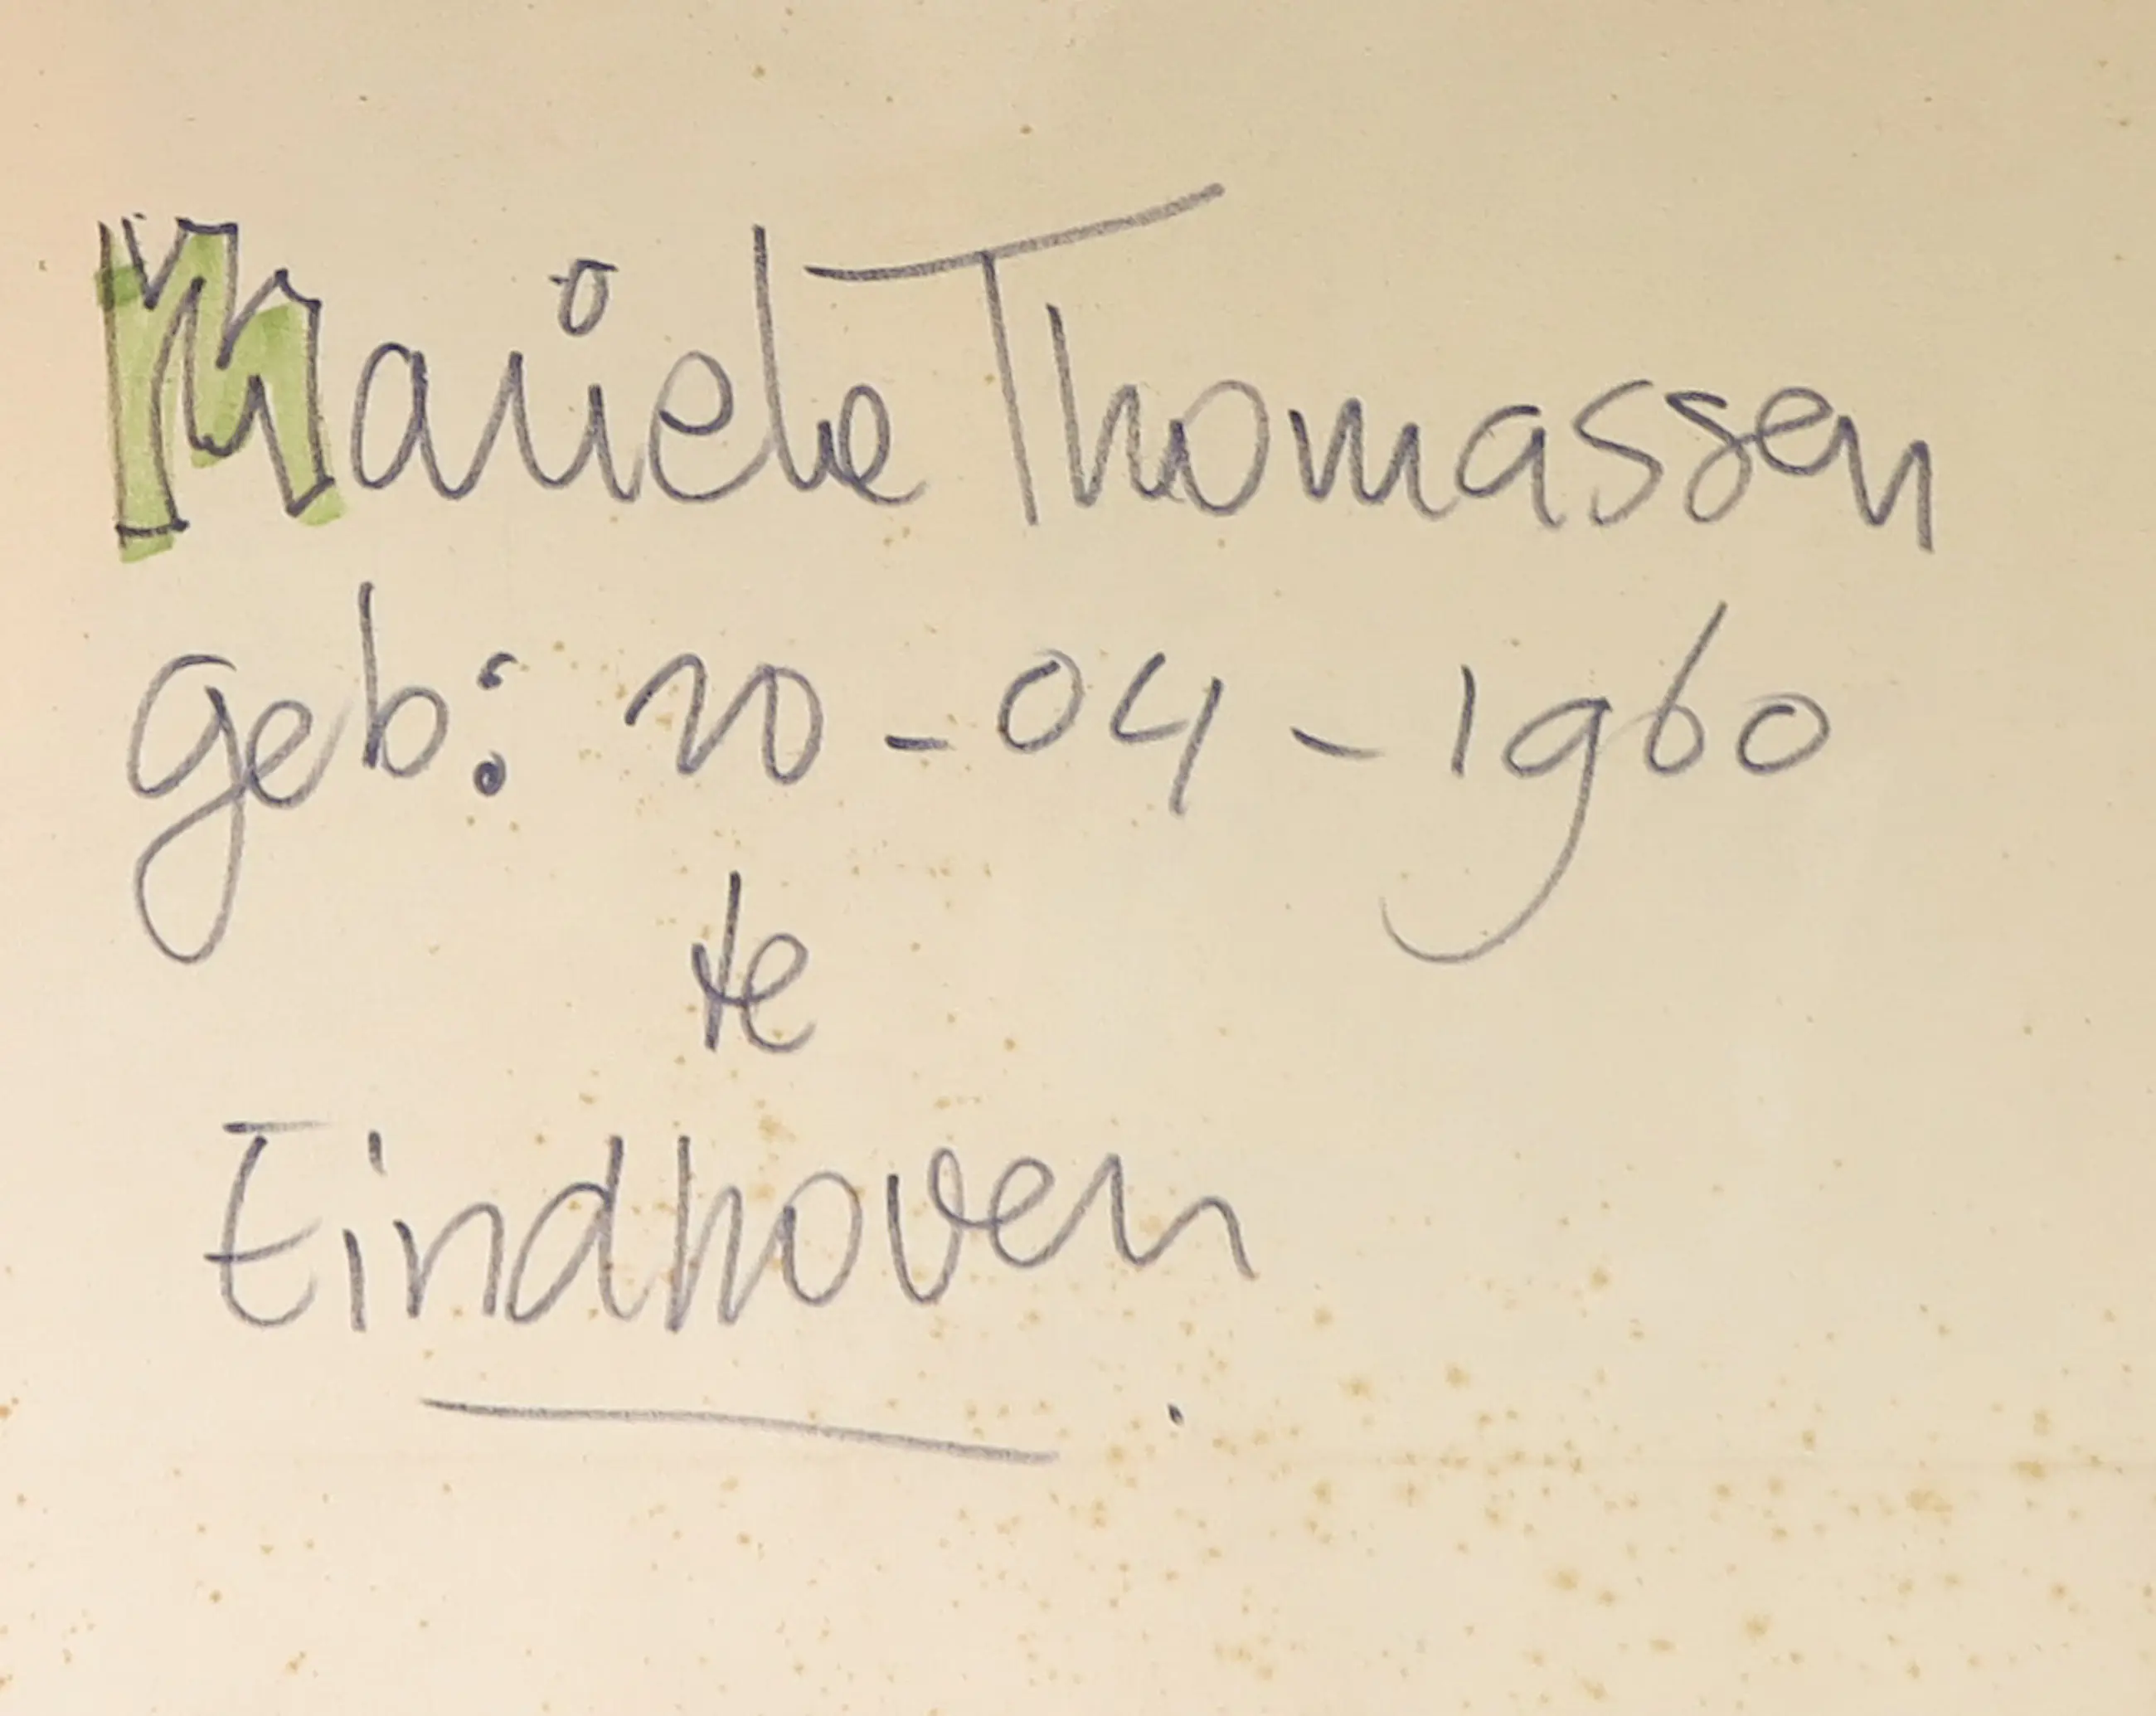 Marieke Thomassen
geb: 20-04-1960
te
Eindhoven